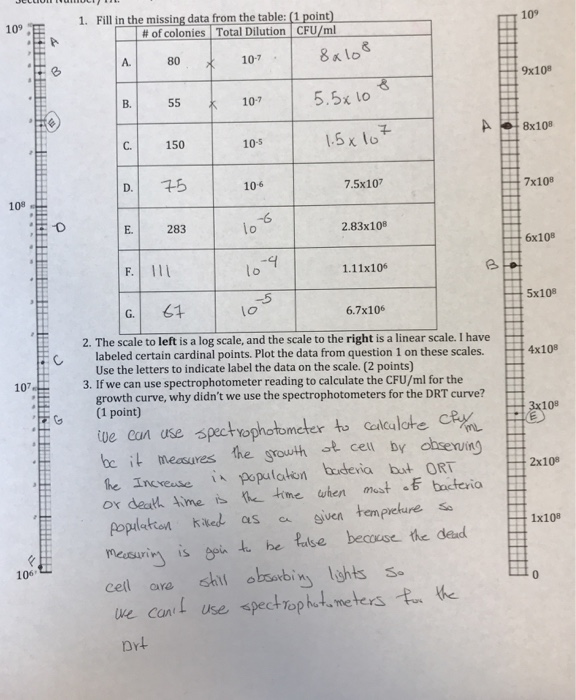 1. Fill in the missing data from the table: (1 point)
# of colonies Total Dilution CFU/ml
A. 80 x 10-7 8x10^8
B. 55 x 10-7 5.5x10^8
C. 150 10-5 1.5x10^7
D. 75 10-6 7.5x10^7
E. 283 10^-6 2.83x10^8
F. 111 10^-4 1.11x10^6
G. 67 10^-5 6.7x10^6
2. The scale to left is a log scale, and the scale to the right is a linear scale. I have
labeled certain cardinal points. Plot the data from question 1 on these scales.
Use the letters to indicate label the data on the scale. (2 points)
3. If we can use spectrophotometer reading to calculate the CFU/ml for the
growth curve, why didn't we use the spectrophotometers for the DRT curve?
(1 point)
we can use spectrophotometer to calculate cfu/mL
bc it measures the growth of cell by observing
the Increase in population bacteria but DRT
or death time is the time when most of bacteria
population killed as a given tempreture so
measuring is goin to be false because the dead
cell are still absorbing lights so
we can't use spectrophotometers for the
Drt
10^9
A
B
E
10^8
D
C
10^7
G
F
10^6
10^9
9x10^8
A 8x10^8
7x10^8
6x10^8
B
5x10^8
4x10^8
3x10^8
E
2x10^8
1x10^8
0